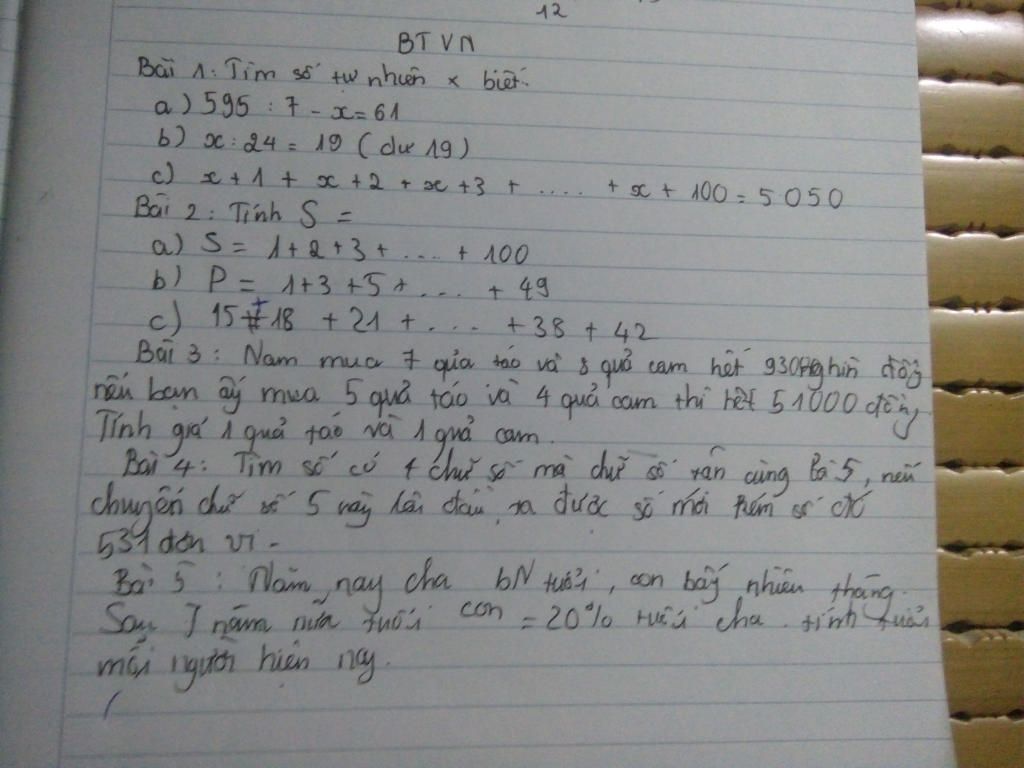 12
BTVN
Bài 1: Tìm số tự nhiên x biết:
a) 595 : 7 - x = 61
b) x : 24 = 19 (dư 19)
c) x + 1 + x + 2 + x + 3 + .... + x + 100 = 5050
Bài 2: Tính S =
a) S = 1 + 2 + 3 + .... + 100
b) P = 1 + 3 + 5 + .... + 49
c) 15 + 18 + 21 + .... + 38 + 42
Bài 3: Nam mua 7 quả táo và 8 quả cam hết 93 nghìn đồng
nếu bạn ấy mua 5 quả táo và 4 quả cam thì hết 51000 đồng
Tính giá 1 quả táo và 1 quả cam.
Bài 4: Tìm số có 4 chữ số mà chữ số tận cùng là 5, nếu
chuyển chữ số 5 này lên đầu, ta được số mới kém số đó
531 đơn vị.
Bài 5: Năm nay cha bN tuổi, con bấy nhiêu tháng.
Sau 7 năm nữa tuổi con = 20% tuổi cha. tính tuổi
mỗi người hiện nay.